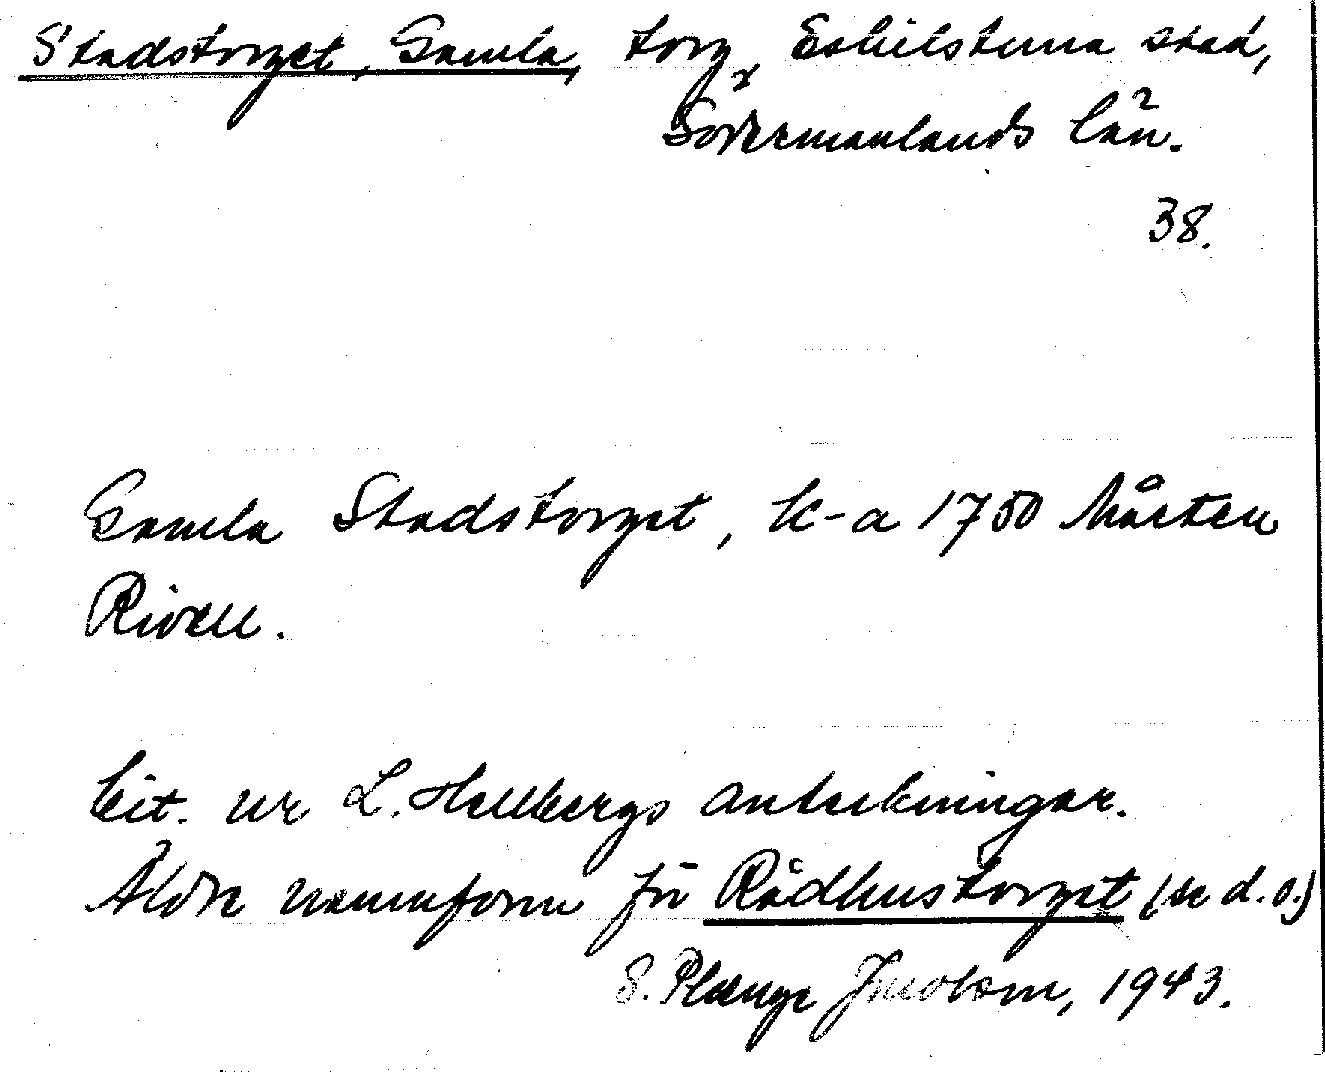 Stadstorget, Gamla, torg, Eskilstuna stad,
x
Södermanlands län.
38.
Gamla Stadstorget, k-a 1750 Mårten
Rivell.
Cit. ur L. Hellbergs anteckningar.
Äldre namnform för Rådhustorget (se d.o.)
S. Plænge Jacobson, 1943.